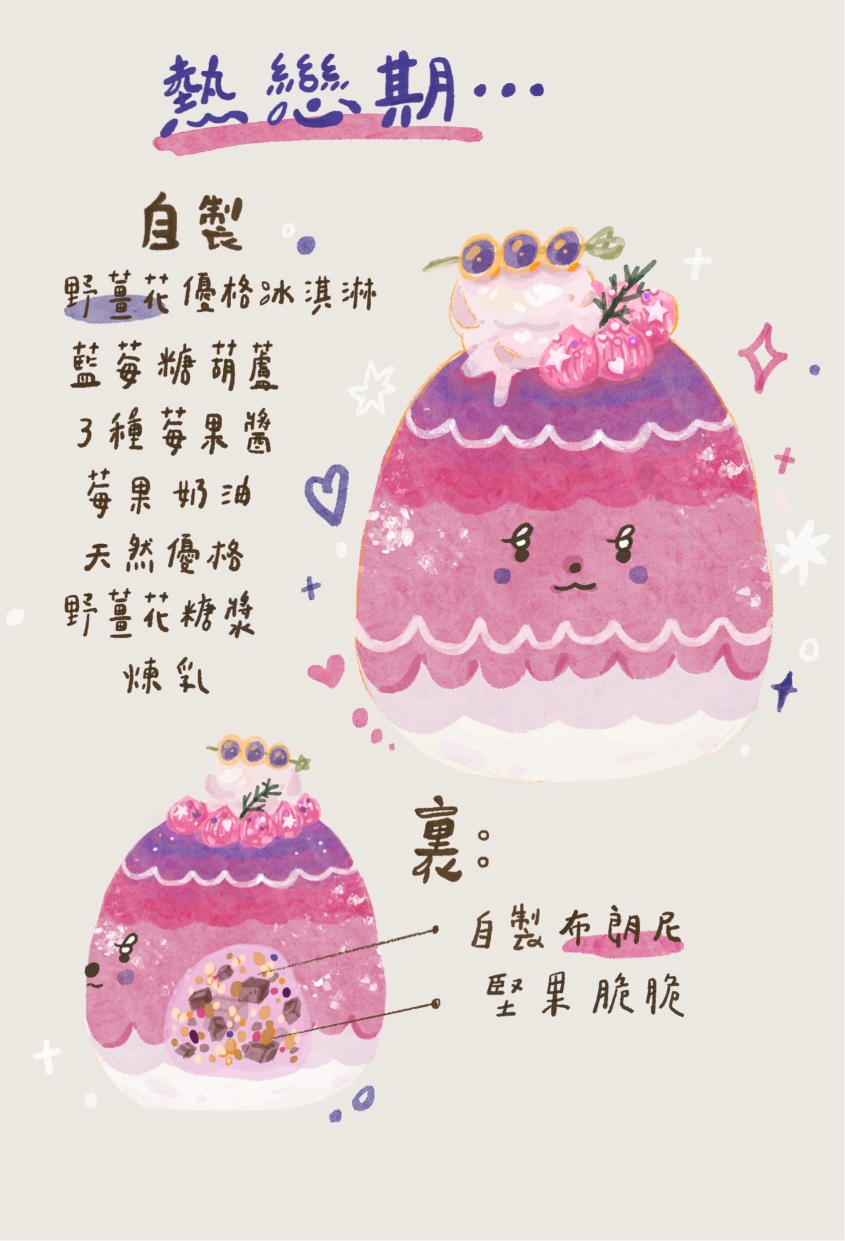 熱戀期...
自製
野薑花優格冰淇淋
藍莓糖葫蘆
3種莓果醬
莓果奶油
天然優格
野薑花糖漿
煉乳
裏：
自製布朗尼
堅果脆脆